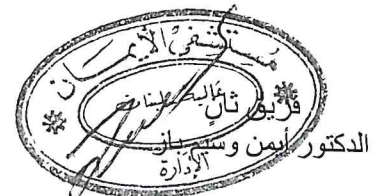 مستشفى الإيمان
فريق ثان
الدكتور أيمن وسيم باز
الإدارة